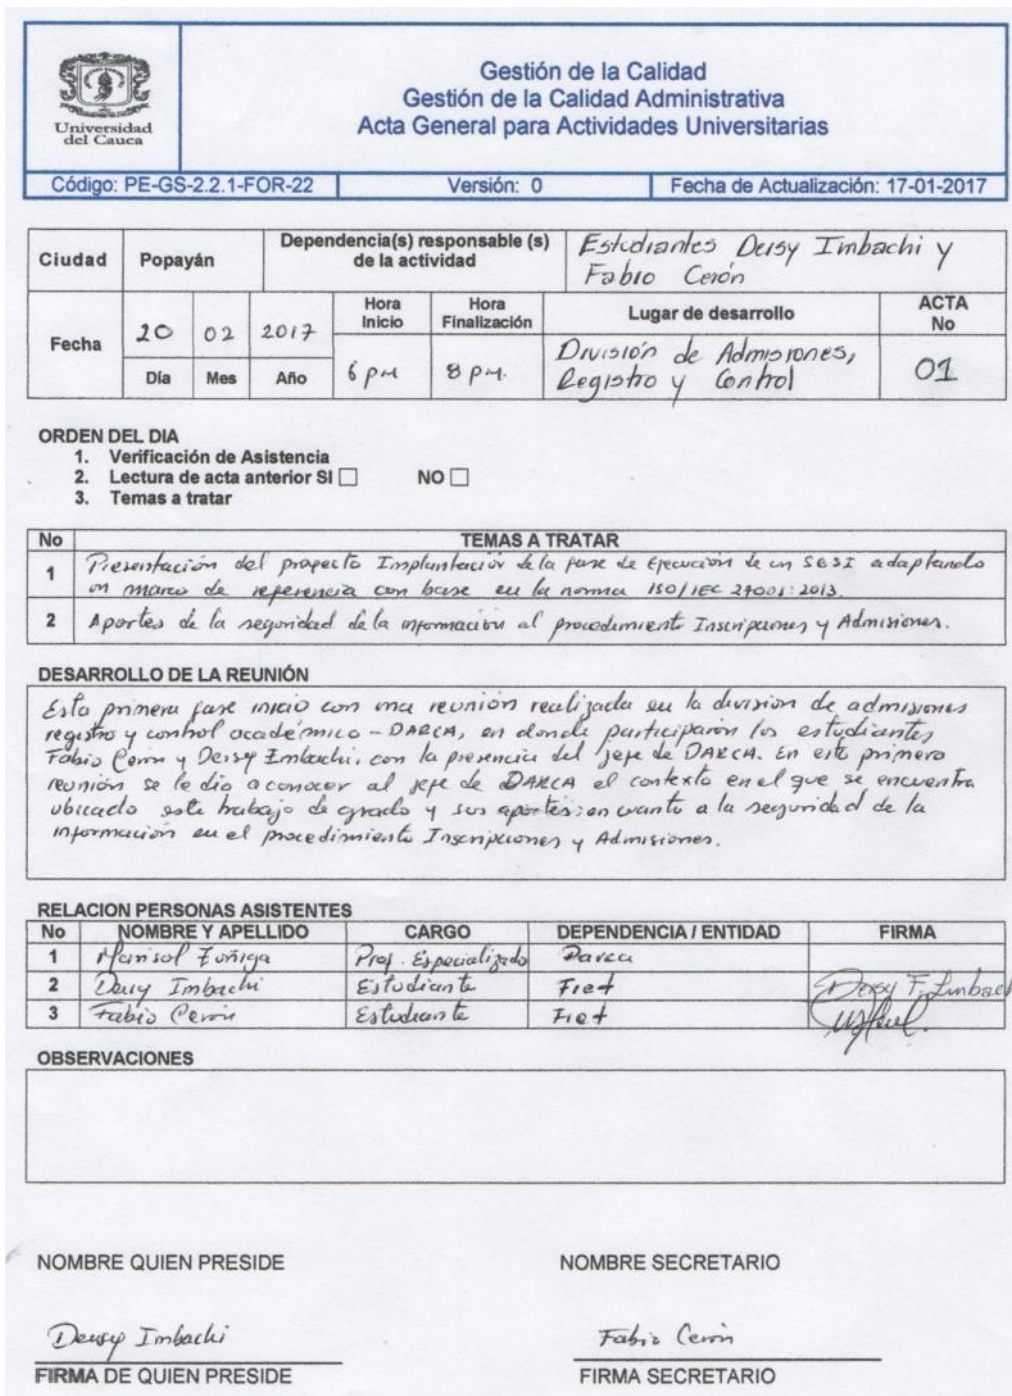 Universidad
del Cauca
Gestión de la Calidad
Gestión de la Calidad Administrativa
Acta General para Actividades Universitarias
Código: PE-GS-2.2.1-FOR-22 Versión: 0 Fecha de Actualización: 17-01-2017
Ciudad Popayán Dependencia(s) responsable (s) de la actividad Estudiantes Deisy Imbachi y
Fabio Cerón
Fecha 20 02 2017 Hora Inicio Hora Finalización Lugar de desarrollo ACTA No
Día Mes Año 6 PM 8 PM. División de Admisiones,
Registro y Control 01
ORDEN DEL DIA
1. Verificación de Asistencia
2. Lectura de acta anterior SI NO
3. Temas a tratar
No TEMAS A TRATAR
1 Presentación del proyecto Implantación de la fase de Ejecución de un SGSI adaptando
un marco de referencia con base en la norma ISO/IEC 27001:2013.
2 Aportes de la seguridad de la información al procedimiento Inscripciones y Admisiones.
DESARROLLO DE LA REUNIÓN
Esta primera fase inicio con una reunión realizada en la division de admisiones
registro y control académico - DARCA, en donde participaron los estudiantes
Fabio Cerón y Deisy Imbachi, con la presencia del jefe de DARCA. En esta primera
reunión se le dio a conocer al jefe de DARCA el contexto en el que se encuentra
ubicado este trabajo de grado y sus aportes en cuanto a la seguridad de la
información en el procedimiento Inscripciones y Admisiones.
RELACION PERSONAS ASISTENTES
No NOMBRE Y APELLIDO CARGO DEPENDENCIA / ENTIDAD FIRMA
1 Marisol Zuñiga Prof. Especializado Darca
2 Deisy Imbachi Estudiante Fiet Deisy F. Imbach
3 Fabio Cerón Estudiante Fiet
OBSERVACIONES
NOMBRE QUIEN PRESIDE NOMBRE SECRETARIO
Deisy Imbachi Fabio Cerón
FIRMA DE QUIEN PRESIDE FIRMA SECRETARIO